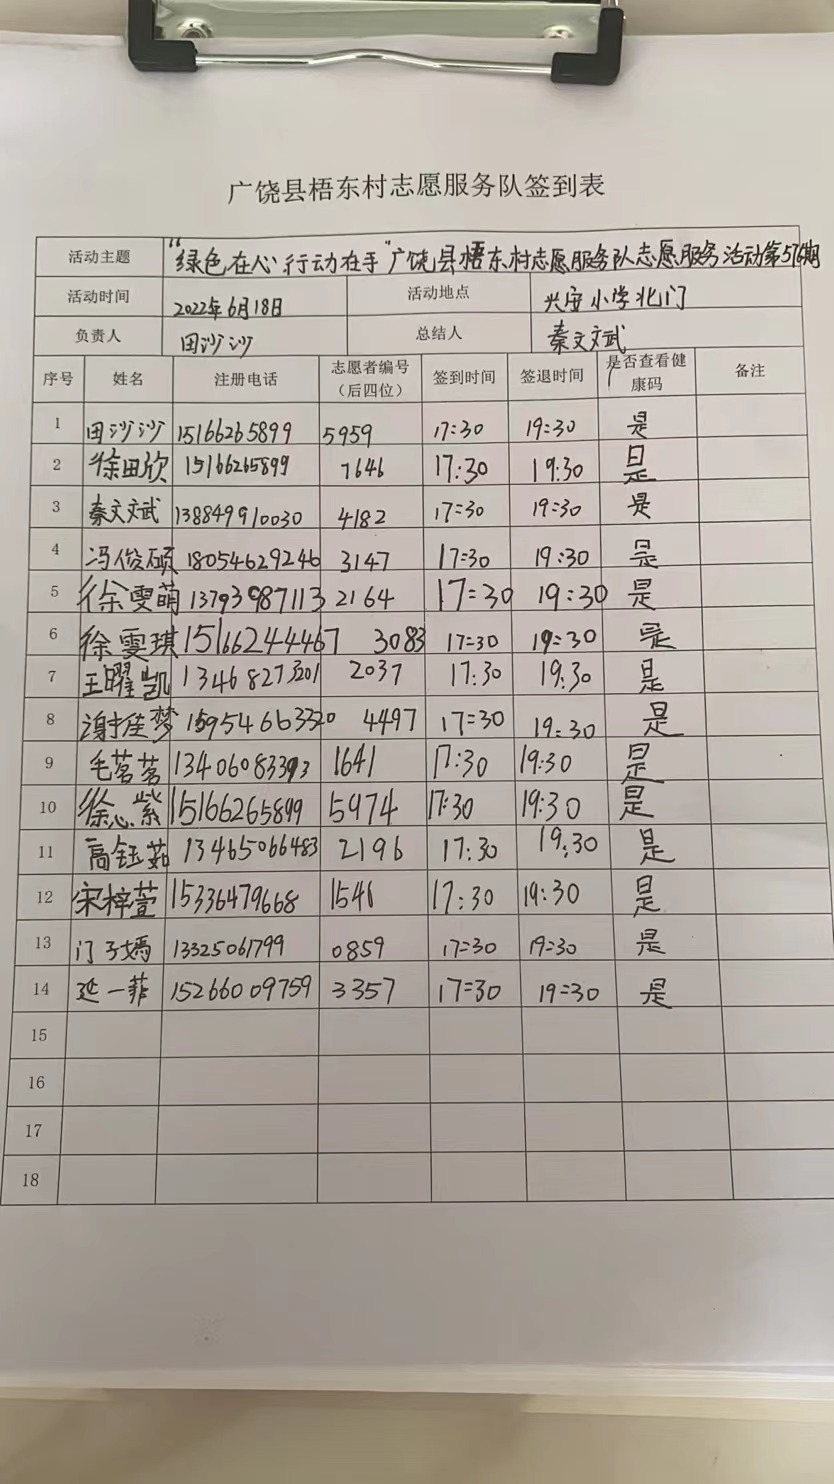 广饶县梧东村志愿服务队签到表
活动主题 “绿色在心 行动在手”广饶县梧东村志愿服务队志愿服务活动第576期
活动时间 2022年6月18日 活动地点 兴安小学北门
负责人 田沙沙 总结人 秦文斌
序号 姓名 注册电话 志愿者编号（后四位） 签到时间 签退时间 是否查看健康码 备注
1 田沙沙 15166265899 5959 17:30 19:30 是
2 徐田欣 15166265899 7646 17:30 19:30 是
3 秦文斌 138849910030 4182 17:30 19:30 是
4 冯俊硕 18054629246 3147 17:30 19:30 是
5 徐雯萌 13793987113 2164 17:30 19:30 是
6 徐雯琪 15166244467 3083 17:30 19:30 是
7 王曜凯 13468273201 2037 17:30 19:30 是
8 谢梦 15954663320 4497 17:30 19:30 是
9 毛茗茗 13406083393 1641 17:30 19:30 是
10 徐心紫 15166265899 5974 17:30 19:30 是
11 高钰茹 13465066483 2196 17:30 19:30 是
12 宋梓萱 15336479668 1546 17:30 19:30 是
13 门子嫣 13325061799 0859 17:30 19:30 是
14 延一菲 15266009759 3357 17:30 19:30 是
15
16
17
18